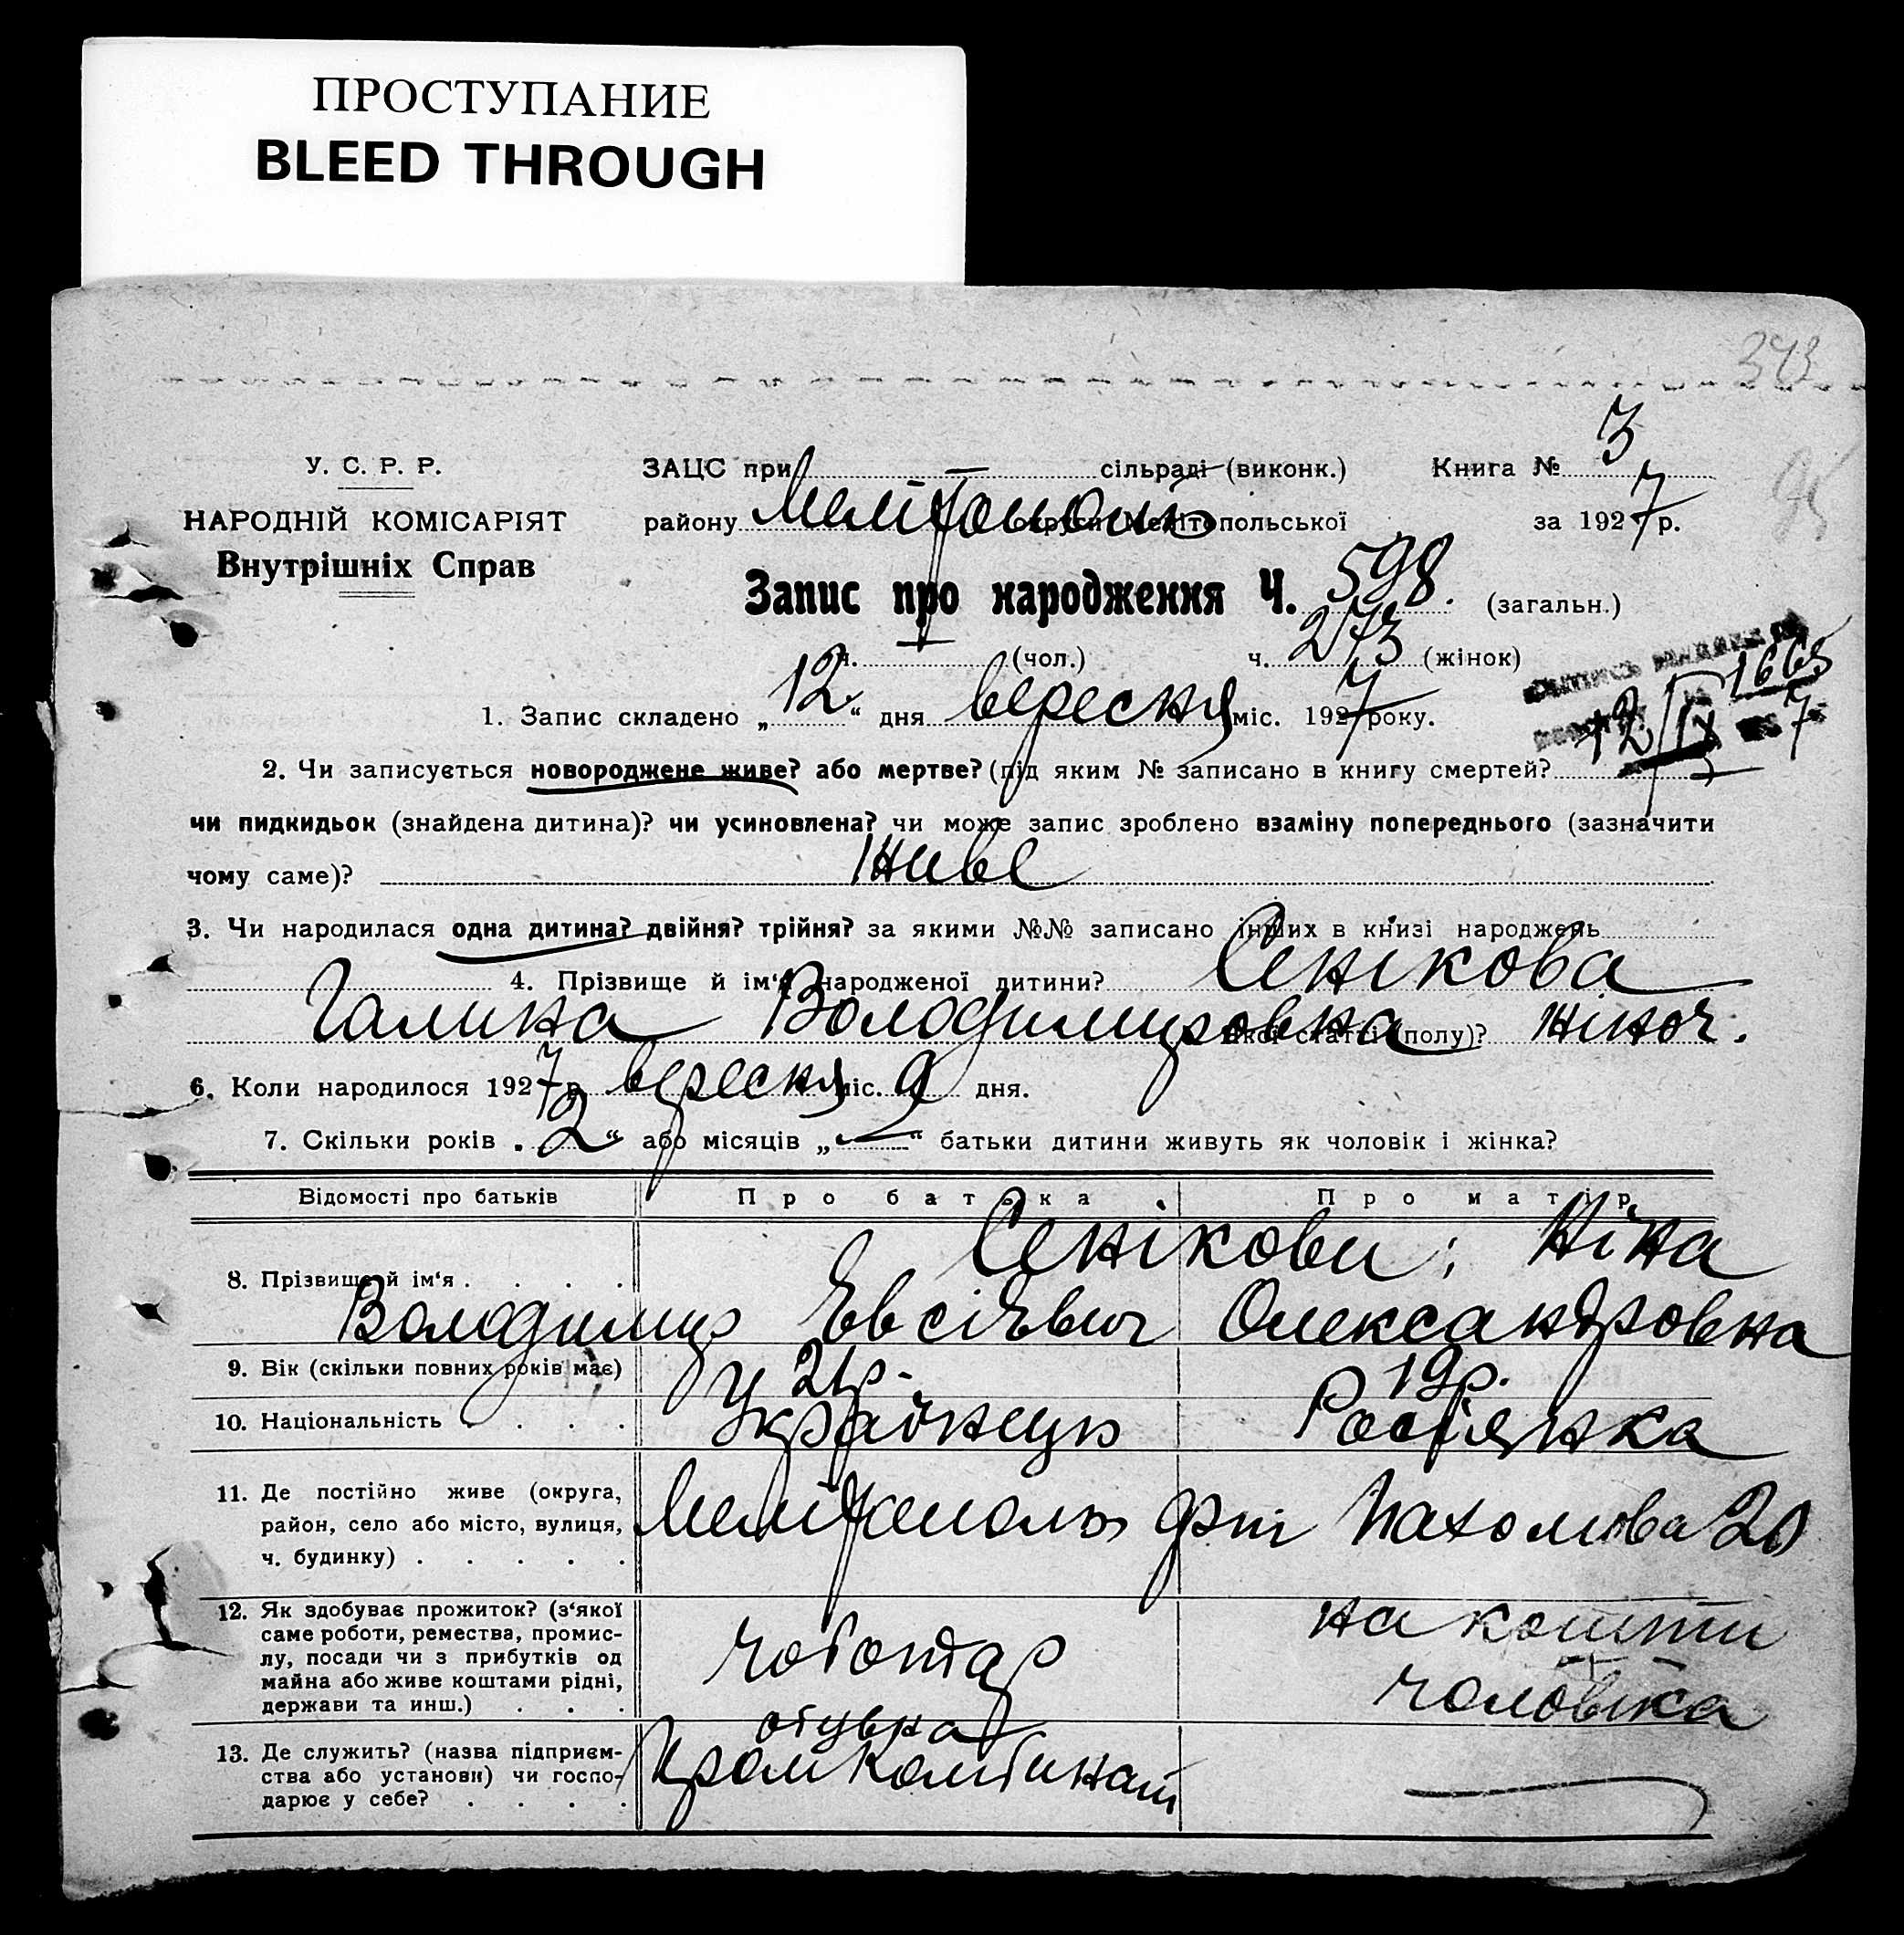 ПРОСТУПАНИЕ
BLEED THROUGH
373
95
У. С. Р. Р.
НАРОДНІЙ КОМІСАРІЯТ
Внутрішніх Справ
ЗАЦС при — сільраді (виконк.) Книга № 3
району Мелітополь округи Мелітопольської за 1927 р.
Запис про народження Ч. 598. (загальн.)
ч. — (чол.) ч. 273 (жінок)
1665
12/IX 7
1. Запис складено „12“ дня вересня міс. 1927 року.
2. Чи записується новороджене живе? або мертве? (під яким № записано в книгу смертей?
чи пидкидьок (знайдена дитина)? чи усиновлена? чи може запис зроблено взаміну попереднього (зазначити
чому саме)? живе
3. Чи народилася одна дитина? двійня? трійня? за якими №№ записано інших в книзі народжень
4. Прізвище й ім‘я народженої дитини? Сенікова
Галина Володимировна якої статті (полу)? жіноч.
6. Коли народилося 1927 р. вересня міс. 9 дня.
7. Скільки років „2“ або місяців „—“ батьки дитини живуть як чоловік і жінка?
Відомості про батьків Про батька Про матір
8. Прізвище й ім‘я . . . . Сенікови; Ніна
Володимир Євсієвич Олександровна
9. Вік (скільки повних років має) 21р. 19р.
10. Національність . . . . Українець Росіянка
11. Де постійно живе (округа,
район, село або місто, вулиця,
ч. будинку) . . . . .
Мелітополь Пахомова 20
12. Як здобуває прожиток? (з‘якої
саме роботи, ремества, промис-
лу, посади чи з прибутків од
майна або живе коштами рідні,
держави та инш.) . . .
чоботар
на кошти
чоловіка
13. Де служить? (назва підприєм-
ства або установи) чи госпо-
дарює у себе? . . . .
Промкомбинат